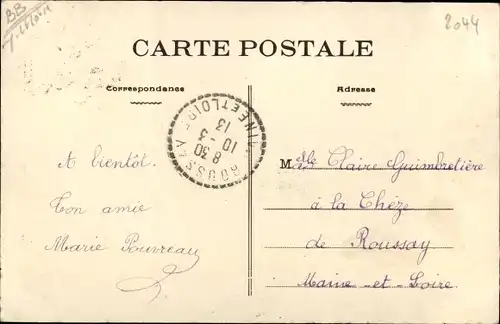 BB
2044
CARTE POSTALE
Correspondance
Adresse
ROUSSAY
MAINE-ET-LOIRE
8 30
10 - 3
13
A bientôt.
Ton amie
Marie Pouvreau
Melle Claire Guimbretière
à la Chèze
de Roussay
Maine-et-Loire